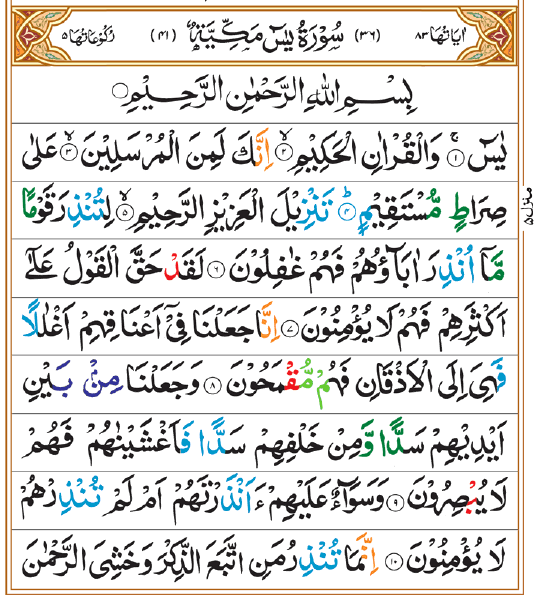 اٰیَاتُهَا ٨٣ (٣٦) سُوْرَةُ یٰسٓ مَكِّیَّةٌ (٤١) رُكُوْعَاتُهَا ٥
بِسْمِ اللهِ الرَّحْمٰنِ الرَّحِیْمِ
یٰسٓ ۝١ وَالْقُرْاٰنِ الْحَكِیْمِ ۝٢ اِنَّكَ لَمِنَ الْمُرْسَلِیْنَ ۝٣ عَلٰی
صِرَاطٍ مُّسْتَقِیْمٍ ۝٤ تَنْزِیْلَ الْعَزِیْزِ الرَّحِیْمِ ۝٥ لِتُنْذِرَ قَوْمًا
مَّاۤ اُنْذِرَ اٰبَآؤُهُمْ فَهُمْ غٰفِلُوْنَ ۝٦ لَقَدْ حَقَّ الْقَوْلُ عَلٰۤی
اَكْثَرِهِمْ فَهُمْ لَا یُؤْمِنُوْنَ ۝٧ اِنَّا جَعَلْنَا فِیْۤ اَعْنَاقِهِمْ اَغْلٰلًا
فَهِیَ اِلَی الْاَذْقَانِ فَهُمْ مُّقْمَحُوْنَ ۝٨ وَجَعَلْنَا مِنْۢ بَیْنِ
اَیْدِیْهِمْ سَدًّا وَّمِنْ خَلْفِهِمْ سَدًّا فَاَغْشَیْنٰهُمْ فَهُمْ
لَا یُبْصِرُوْنَ ۝٩ وَسَوَآءٌ عَلَیْهِمْ ءَاَنْذَرْتَهُمْ اَمْ لَمْ تُنْذِرْهُمْ
لَا یُؤْمِنُوْنَ ۝١٠ اِنَّمَا تُنْذِرُ مَنِ اتَّبَعَ الذِّكْرَ وَخَشِیَ الرَّحْمٰنَ
منزل ٥